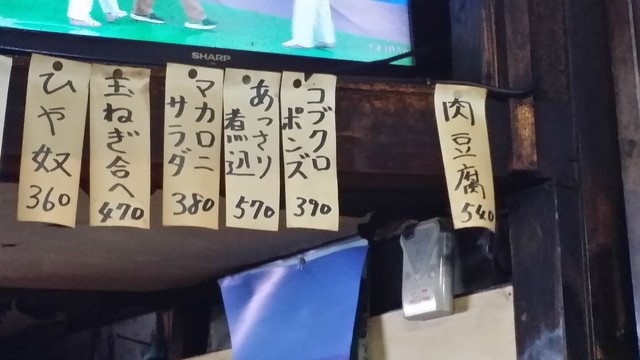 SHARP
ひや奴
360
玉ねぎ合へ
470
マカロニ
サラダ
380
あっさり
煮込
570
コブクロ
ポンズ
390
肉豆腐
540